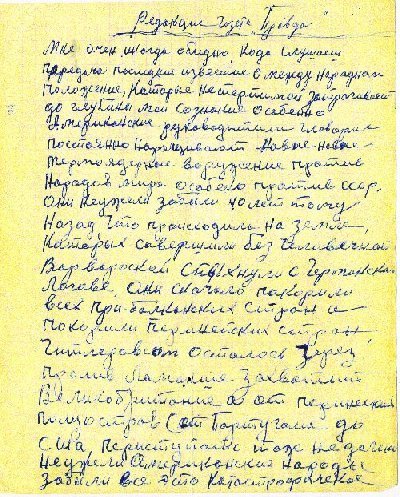 Редакцие газета "Правда"
Мне очен иногда обидно, кода слушаеш
передаче последние известие в между народнам
положение, которые нетерпимой затрагивает
до глубины мой сознание особенно
Американские руководители главарии
постоянно наращивают новые-новы
термоядерные вооружение против
Народав мира особено против ссср.
Они неужели забыли 40 лет тому
Назад что происходила на земле,
которых совершили без человечной
Варварской с Германской
Логаве, они сначало покорили
всех при-балтийских стран и
покорили стран
Гитлеровцам осталось
против захватит
Великобритание а от
полуостров (от Партугали до
США тоже недалеко
Неужели Американские Народы
забыли все это катострофическое